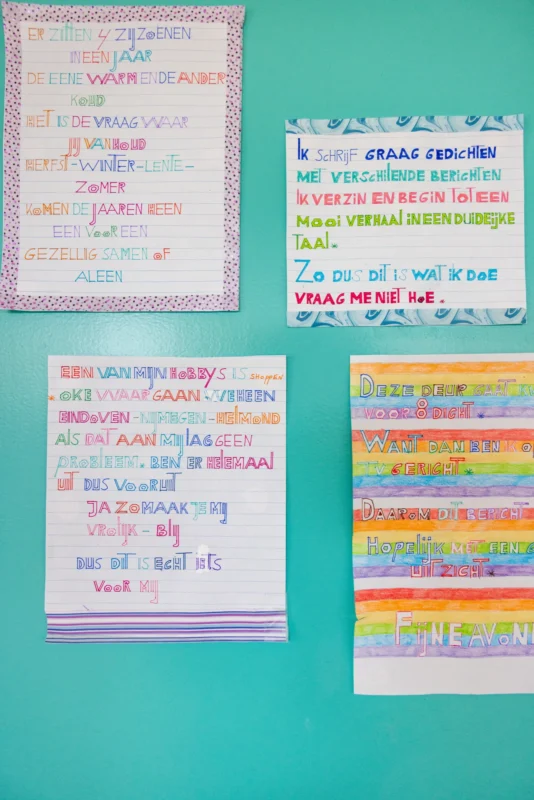 ER ZITTEN 4 ZIJZOENEN
IN EEN JAAR
DE EENE WARM EN DE ANDER
KOUD
HET IS DE VRAAG WAAR
JIJ VAN HOUD
HERFST-WINTER-LENTE-
ZOMER
KOMEN DE JAAREN HEEN
EEN VOOR EEN
GEZELLIG SAMEN OF
ALEEN
IK SCHRIJF GRAAG GEDICHTEN
MET VERSCHILENDE BERICHTEN
IK VERZIN EN BEGIN TOT EEN
MOOI VERHAAL IN EEN DUIDEIJKE
TAAL.
ZO DUS DIT IS WAT IK DOE
VRAAG ME NIET HOE.
EEN VAN MIJN HOBBYS IS SHOPPEN
OKE WAAR GAAN WE HEEN
EINDOVEN-NIJMEGEN-HELMOND
ALS DAT AAN MIJ LAG GEEN
PROBLEEM. BEN ER HELEMAAL
UIT DUS VOORUIT
JA ZO MAAK JE MIJ
VROLIJK-BLIJ
DUS DIT IS ECHT IETS
VOOR MIJ
DEZE DEUR GAAT
VOOR 8 DICHT
WANT DAN BEN IK OP
TV GERICHT.
DAAROM DIT BERICHT
HOPELIJK MET EEN
UIT ZICHT
FIJNE AVON